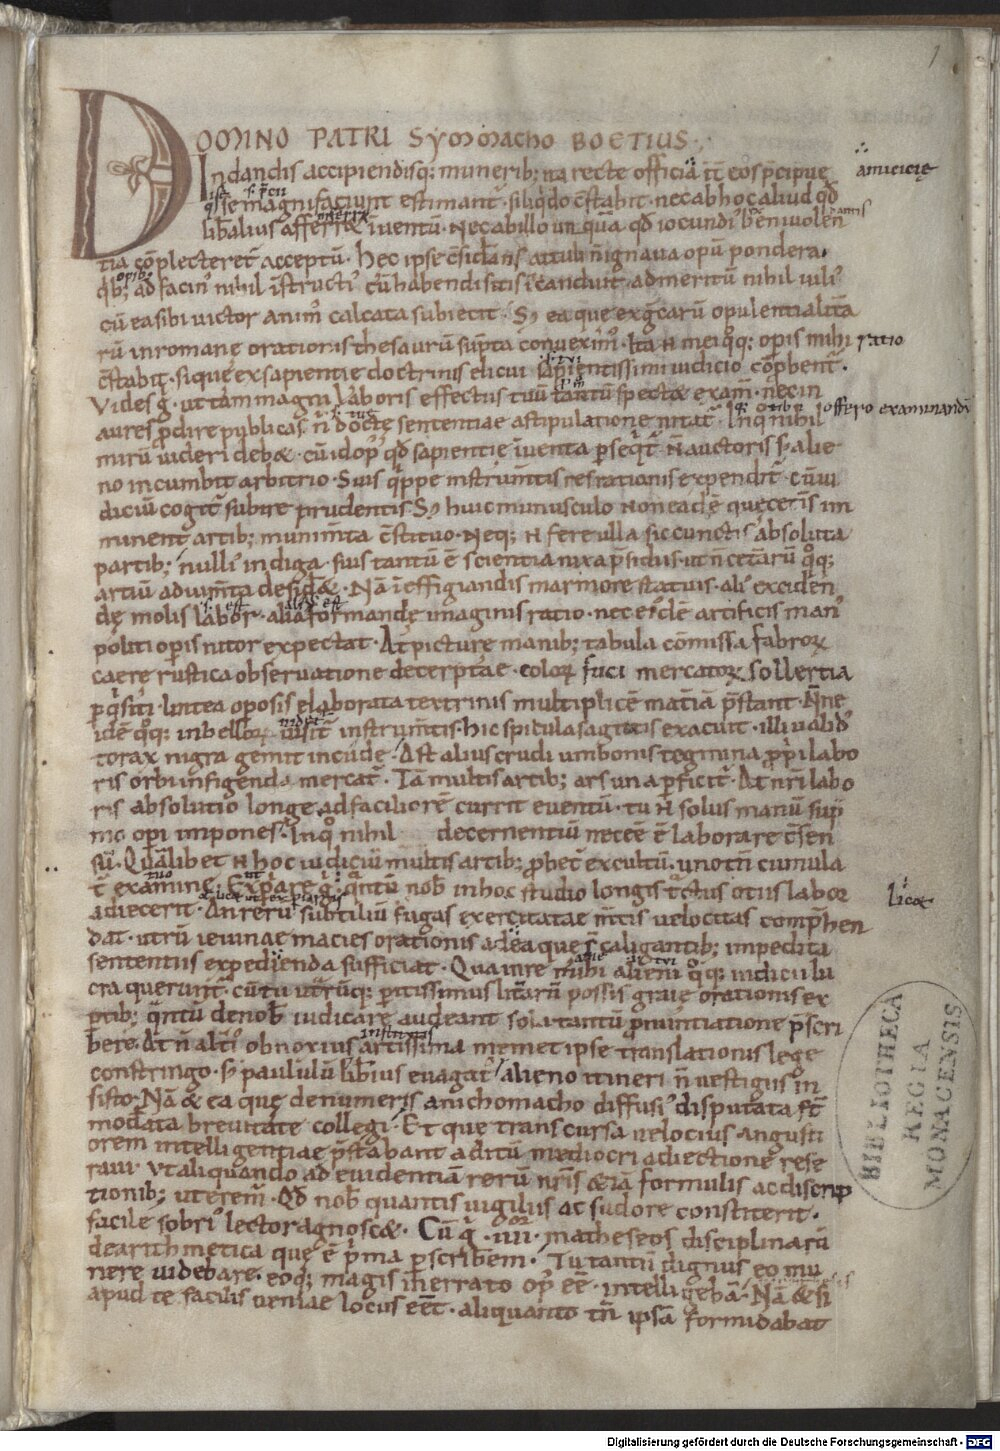 1
DOMINO PATRI SYMMACHO BOETIUS.
In dandis accipiendisq; munerib; ita recte officia int̄ eos p̄cipue
amicicię
se magni faciunt estimant̄. si liq̇do c̄stabit. nec ab hoc aliud qđ
lib̄alius afferret inventū. Nec ab illo unquā qđ iocundi benivolen
tia cōplecteret acceptū. hęc ipse c̄sid̄ans attuli n̄ ignava opū pondera.
q̇b; ad facin̄ nihil īstructi cū habendi sitis īcanduit. ad meritū nihil vili
cū ea sibi victor anim̄ calcata subiecit. Sȝ ea que ex g̃carū opulentia litt̄a
rū in romane orationis thesaurū sūpta convexim̄. Ita n mei q̊q; opis mihi
ratio
c̄stabit. si que ex sapientie doctrinis elicui sapientissimi iudicio cōp̄bent̄.
Vides g̊. ut tam magni laboris effectus tuū tantū spectet exam̄. nec in
aures p̄dire publicas. n̄ docte sententiae astipulatione nitat̄. In q̊ nihil
offero examinandū
mirū videri debet. cū id op̄ qđ sapientie īventa p̄seq̇t̄ n̄ auctoris sȝ alie
no incumbit arbitrio. Suis q̇ppe instrum̄tis res rationis expendit̄. cū iu
diciū cogit̄ subire prudentis. Sȝ huic munusculo non eadē que cet̄is im
minent artib; munim̄ta c̄stituo. Neq; n fere ulla sic cunctis absoluta
partib; nulli indiga. suis tantū ē scientia nixa p̄sidiis. ut n̄ cet̄arū q̊q;
artiū adium̄ta desid̄et. Nā ī effigiandis marmore statuis. ali exciden
dę molis labor. alia formandę imaginis ratio. nec eiꝰdē artificis man̄
politi opis nitor expectat. At picture manib; tabula cōmissa fabroꝝ
caere rustica observatione decerptae. coloꝝ fuci mercatoꝝ sollertia
pq̇siti. lintea opōsis elaborata textrinis multiplicē mat̄iā p̄stant. Nn̄e
idē q̊q; in belloꝝ visit̄ instrum̄tis. hic spicula sagittis exacuit. illi valid
torax nigra gemit incude. Ast alius crudi umbonis tegmina p̄prii labo
ris orbi infigenda mercat̄. Tā multis artib; ars una p̄ficit̄. At nr̄i labo
ris absolutio longe ad faciliorē currit eventū. tu n solus manū sup̄
mo opi impones. In q̊ nihil decernentiū necē ē laborare c̄sen
su. Quālibet n hoc iudiciū multis artib; p̄bet̄ excultū. uno tn̄ cumula
t̄ examine. Exp̄iare g̊. q̇ntū nob̄ in hoc studio longis t̄ctus otiis labor
licet
adiecerit. An rerū subtiliū fugas exercitatae m̄tis velocitas comp̄hen
dat. utrū ieiunae macies orationis ad ea que s̄ caligantib; impedita
sententiis expedienda sufficiat. Qua in re mihi alieni q̊q; iudicii lu
cra querunt̄. cū tu utrūq; p̄itissimus litt̄arū possis graie orationis ex
ptib; q̇ntū de nob̄ iudicare audeant sola tantū p̄nuntiatione p̄scri
bere. At n̄ alt̄i obnoxius artissima memet ipse translationis lege
constringo. sȝ paululū lib̄ius evagat̄. alieno itineri n̄ vestigiis in
sisto. Nā & ea que de numeris a nichomacho diffusi disputata st̄
mod̄ata brevitate collegi. Et que transcursa velocius angusti
orem intelligentiae p̄stabant aditū mediocri adiectione rese
ravi. Vt aliquando ad evidentiā rerū nr̄is etiā formulis ac discrip
tionib; uterem̄. Qđ nob̄ quantis vigiliis ac sudore constiterit.
facile sobri lector agnoscet. Cū q̇ .iiii. matheseos disciplinarū
de arithmetica que ē p̄ma p̄scribem. Tu tantū dignus eo mu
nere videbare. eoq; magis inerrato op̄ ee. intelligebā. Nā & si
apud te facilis veniae locus eēt. aliquanto tn̄ ipsā formidabat
BIBLIOTHECA
REGIA
MONACENSIS
Digitalisierung gefördert durch die Deutsche Forschungsgemeinschaft - DFG